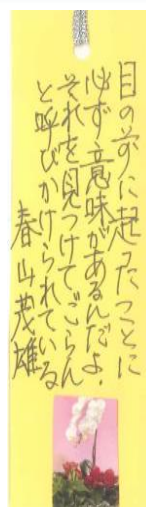 目の前に起ったことに
必ず意味があるんだよ、
それを見つけてごらん
と呼びかけられている
春山茂雄